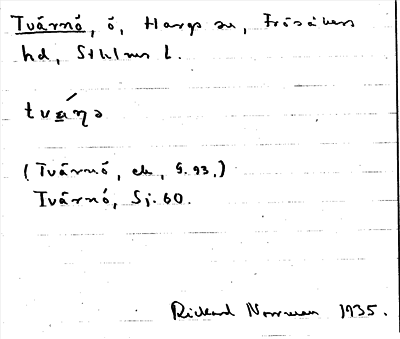 Tvärnö, ö, Hargs sn, Frösåkers
hd, Sthlms l.
tvá̱ṇə
(Tvärnö, ek, G.93.)
Tvärnö, Sj. 60.
Rickard Norrman 1935.